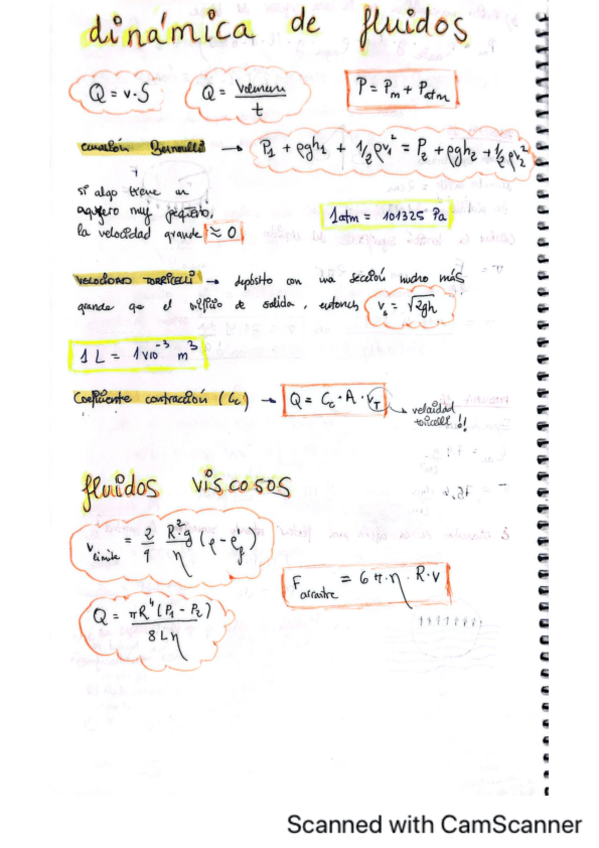 dinámica de fluidos
Q = v·S
Q = Volumen / t
P = Pm + Patm
ecuación Bernoulli → P1 + ρgh1 + 1/2 ρv1² = P2 + ρgh2 + 1/2 ρv2²
si algo tiene un
agujero muy pequeño,
la velocidad grande ≈ 0
1 atm = 101325 Pa
VELOCIDAD TORRICELLI → depósito con una sección mucho más
grande que el orificio de salida, entonces vs = √2gh
1 L = 1x10⁻³ m³
Coeficiente contracción (Cc) → Q = Cc · A · vT
→ velocidad
toricelli !!
fluidos viscosos
v límite = 2/9 R²·g/η (ρ - ρf)
F arrastre = 6π·η·R·v
Q = πR⁴(P1 - P2) / 8Lη
Scanned with CamScanner